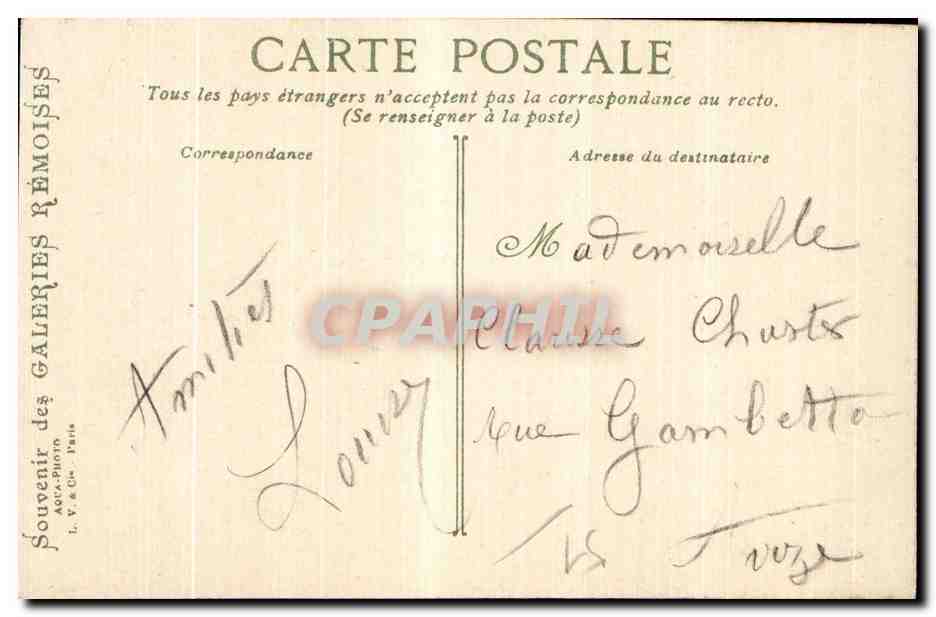 CARTE POSTALE
Tous les pays étrangers n'acceptent pas la correspondance au recto.
(Se renseigner à la poste)
Correspondance
Adresse du destinataire
Souvenir des GALERIES RÉMOISES
AQUA-PHOTO
L. V. & Cie - Paris
Amitiés
Mademoiselle
Clarisse
rue Gambetta
CPAPHIL